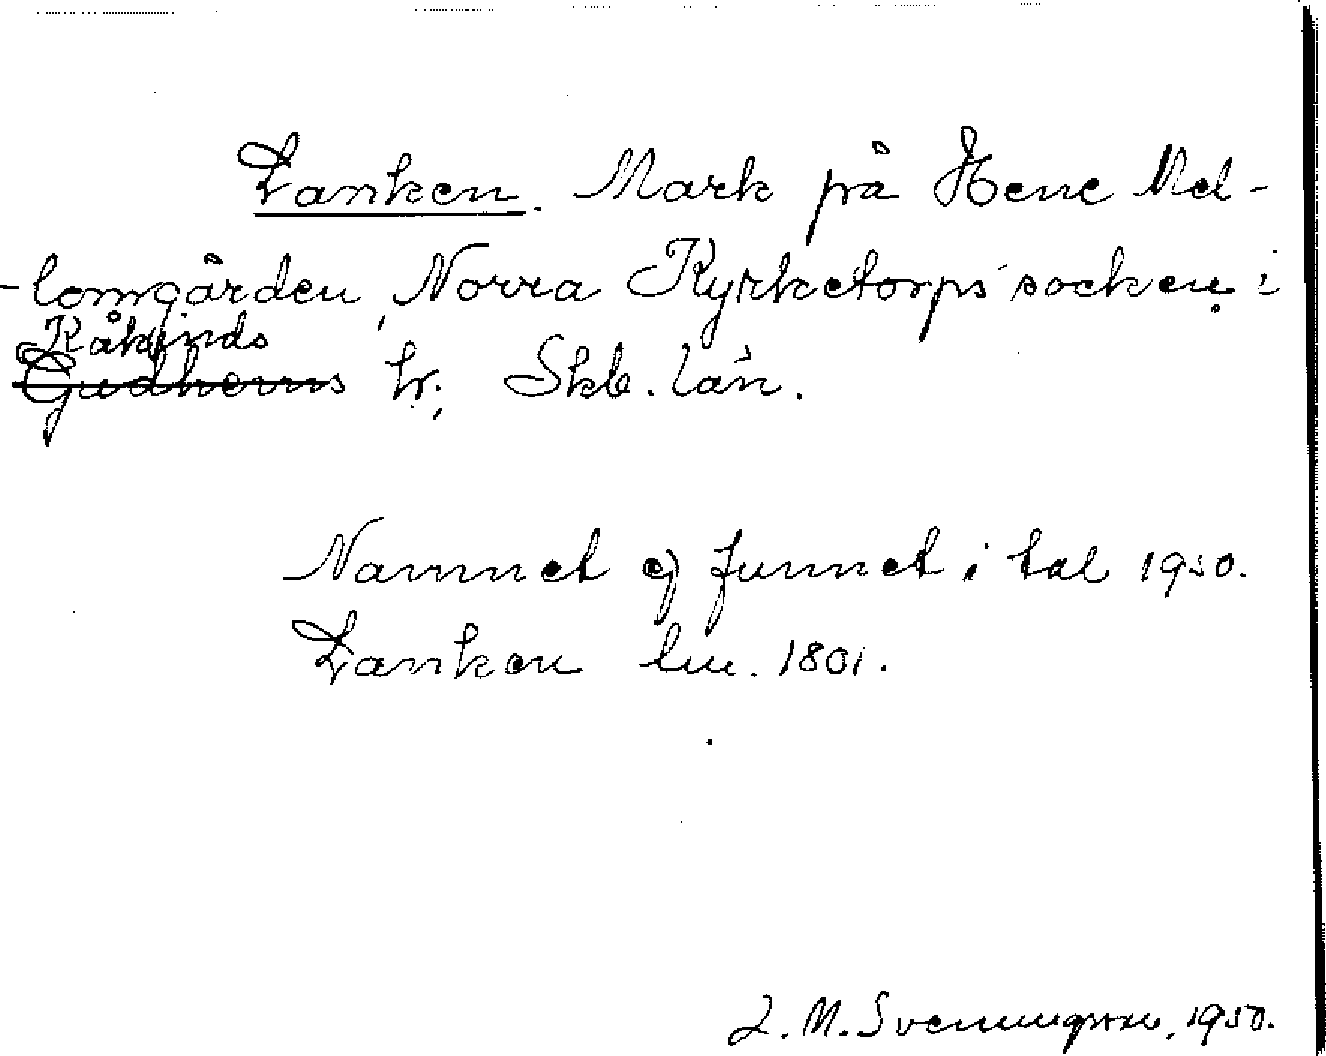 Lanken. Mark på Hene Mel-
-lomgården, Norra Kyrketorps socken i
Kåkinds
Gudhems hr, Skb. län.
Namnet ej funnet i tal 1950.
Lanken lm. 1801.
L. M. Svenungsson, 1950.